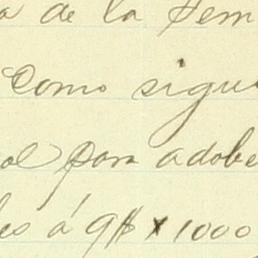 a de la Sem
Como sigue
ol para adobe
les á 9$ x 1000